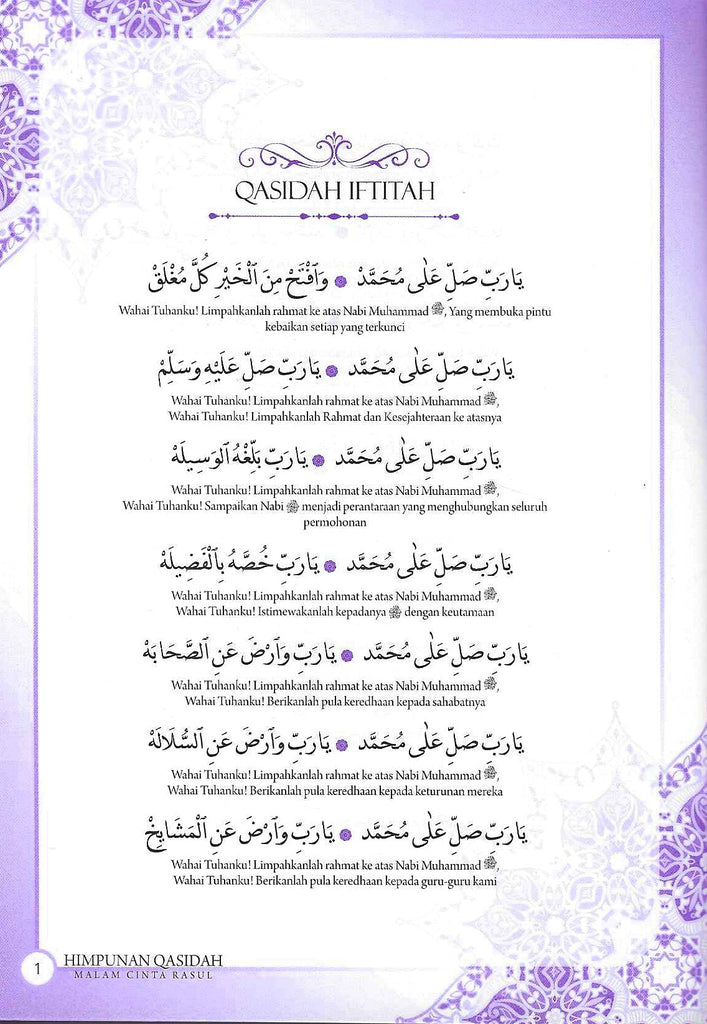 QASIDAH IFTITAH
يَا رَبِّ صَلِّ عَلٰى مُحَمَّدْ ۞ وَٱفْتَحْ مِنَ ٱلْخَيْرِ كُلَّ مُغْلَقْ
Wahai Tuhanku! Limpahkanlah rahmat ke atas Nabi Muhammad ﷺ, Yang membuka pintu
kebaikan setiap yang terkunci
يَا رَبِّ صَلِّ عَلٰى مُحَمَّدْ ۞ يَا رَبِّ صَلِّ عَلَيْهِ وَسَلِّمْ
Wahai Tuhanku! Limpahkanlah rahmat ke atas Nabi Muhammad ﷺ,
Wahai Tuhanku! Limpahkanlah Rahmat dan Kesejahteraan ke atasnya
يَا رَبِّ صَلِّ عَلٰى مُحَمَّدْ ۞ يَا رَبِّ بَلِّغْهُ ٱلْوَسِيلَهْ
Wahai Tuhanku! Limpahkanlah rahmat ke atas Nabi Muhammad ﷺ,
Wahai Tuhanku! Sampaikan Nabi ﷺ menjadi perantaraan yang menghubungkan seluruh
permohonan
يَا رَبِّ صَلِّ عَلٰى مُحَمَّدْ ۞ يَا رَبِّ خُصَّهُ بِٱلْفَضِيلَهْ
Wahai Tuhanku! Limpahkanlah rahmat ke atas Nabi Muhammad ﷺ,
Wahai Tuhanku! Istimewakanlah kepadanya ﷺ dengan keutamaan
يَا رَبِّ صَلِّ عَلٰى مُحَمَّدْ ۞ يَا رَبِّ وَٱرْضَ عَنِ ٱلصَّحَابَهْ
Wahai Tuhanku! Limpahkanlah rahmat ke atas Nabi Muhammad ﷺ,
Wahai Tuhanku! Berikanlah pula keredhaan kepada sahabatnya
يَا رَبِّ صَلِّ عَلٰى مُحَمَّدْ ۞ يَا رَبِّ وَٱرْضَ عَنِ ٱلسُّلَالَهْ
Wahai Tuhanku! Limpahkanlah rahmat ke atas Nabi Muhammad ﷺ,
Wahai Tuhanku! Berikanlah pula keredhaan kepada keturunan mereka
يَا رَبِّ صَلِّ عَلٰى مُحَمَّدْ ۞ يَا رَبِّ وَٱرْضَ عَنِ ٱلْمَشَايِخْ
Wahai Tuhanku! Limpahkanlah rahmat ke atas Nabi Muhammad ﷺ,
Wahai Tuhanku! Berikanlah pula keredhaan kepada guru-guru kami
1
HIMPUNAN QASIDAH
MALAM CINTA RASUL